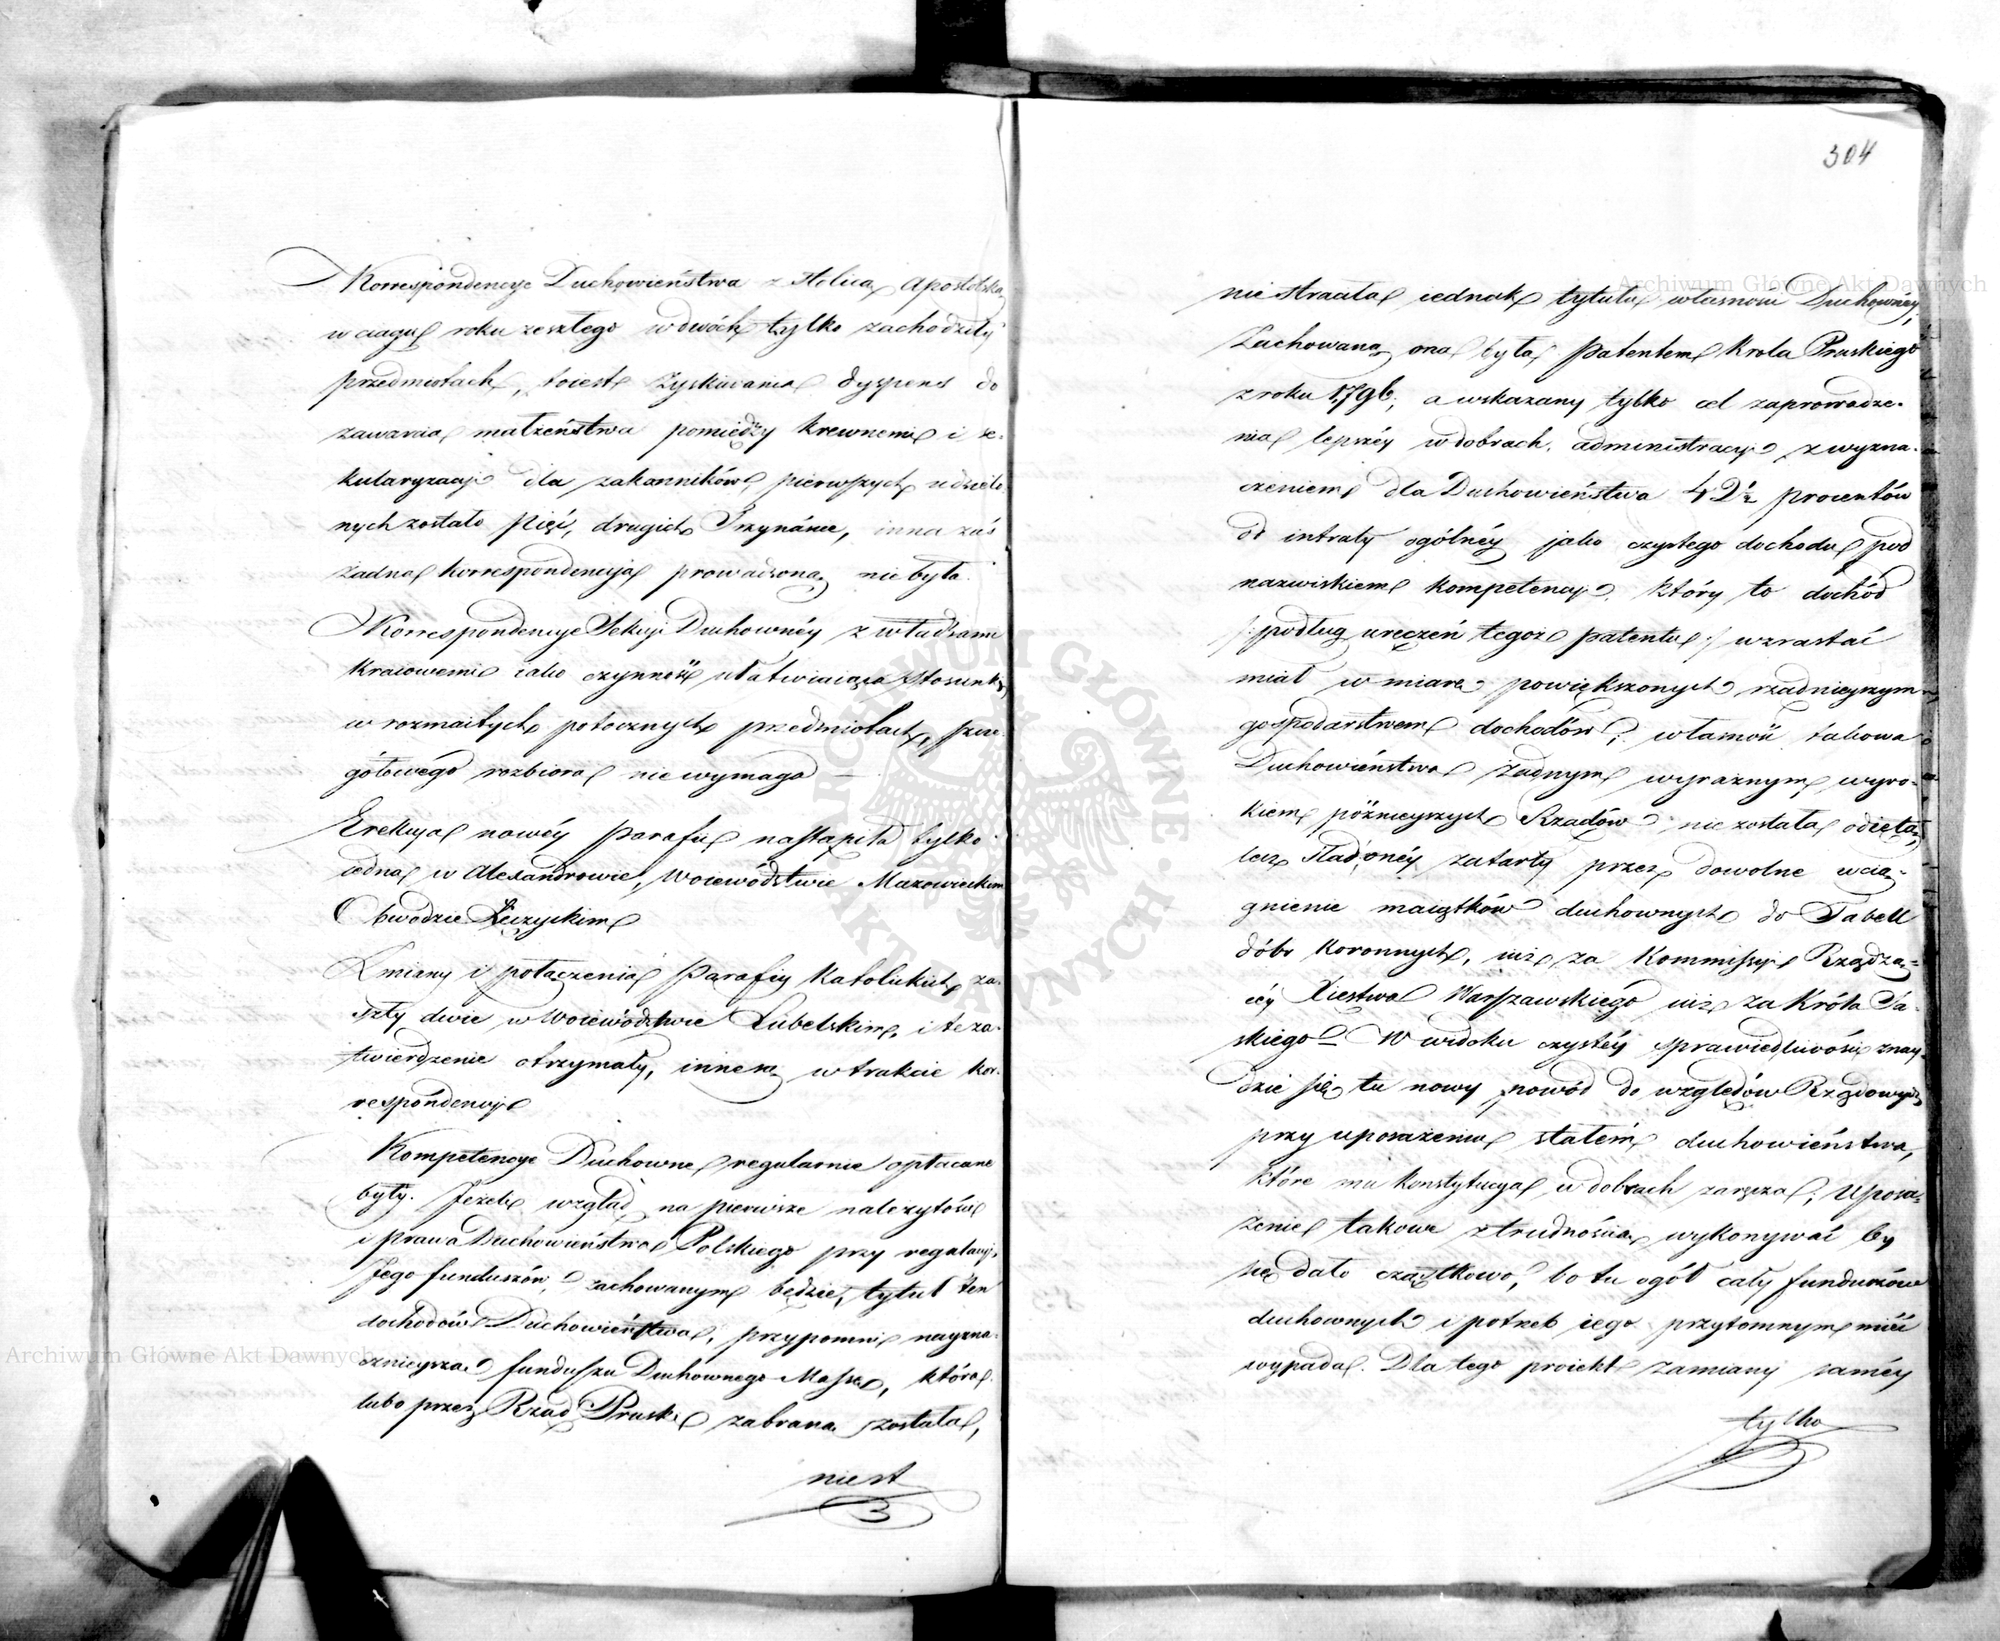 Korrespondencye Duchowieństwa z Stolicą Apostolską
w ciągu roku zeszłego w dwóch tylko zachodziły
przedmiotach, toiest zyskiwania dyspens do
zawarcia małżeństwa pomiędzy krewnemi i se-
kularyzacyi dla zakonników, pierwszych udzielo-
nych zostało pięć, drugich Trzynáście, inna zaś
żadna korrespondencyja prowadzoną nie była.
Korrespondencye Sekcyi Duchownéy z władzami
kraiowemi iako czynność ułatwiaiąca stosunki
w rozmaitych potocznych przedmiotach, szcze-
gółowego rozbioru nie wymaga —
Erekcya nowéy Parafii nastąpiła tylko
iedna w Alexandrowie, Woiewództwie Mazowieckim
Obwodzie Łęczyckim
Zmiany i połączenia Parafiy Katolickich za-
szły dwie w Woiewództwie Lubelskim, i te za-
twierdzenie otrzymały, inne są w trakcie kor-
respóndencyi
Kompetencye Duchowne regularnie opłacane
były. Jeżeli wzgląd na pierwsze należytości
i prawa Duchowieństwa Polskiego przy regulacyi
Jego funduszów, zachowanym będzie, tytuł ten
dochodów Duchowieństwa, przypomni nayzna-
cznieyszą funduszu Duchownego Massę, która
lubo przez Rząd Pruski zabraną została,
nie st
304
nie straciła iednak tytułu własności Duchownéy,
Zachowaną ona była Patentem Króla Pruskiego
z roku 1796, a wskazany tylko cel zaprowadze-
nia lepszéy w dobrach administracyi z wyzna-
czeniem dla Duchowieństwa 42½ procentów
od intraty ogólnéy jako czystego dochodu pod
nazwiskiem kompetencyi. który to dochód
/:podług uręczeń tegoż patentu:/ wzrastać
miał w miarę powiększonych rządnieyszym
gospodarstwem dochodów; własność takowa
Duchowieństwa żadnym wyraźnym wyro-
kiem póżnieyszych Rządów nie została odiętą,
lecz ślad onéy zatarty przez dowolne wcią-
gnienie maiątków duchownych do Tabell
dóbr koronnych, iuż za Kommissyi Rządzą-
céy Xięstwa Warszawskiégo iuż za Króla Sa-
skiego — W widoku czystéy sprawiedliwości znay-
dzie się tu nowy powód do względów Rządowych
przy uposażeniu stałém duchowieństwa,
które mu konstytucya w dobrach zaręcza; Uposa-
żenie takowe z trudnością wykonywać by
się dało cząstkowo, bo tu ogół cały funduszów
duchownych i potrzeb iego przytomnym mieć
wypada. Dla tego proiekt zamiany saméy
tylko
Archiwum Główne Akt Dawnych
Archiwum Główne Akt Dawnych
ARCHIWUM GŁÓWNE AKT DAWNYCH